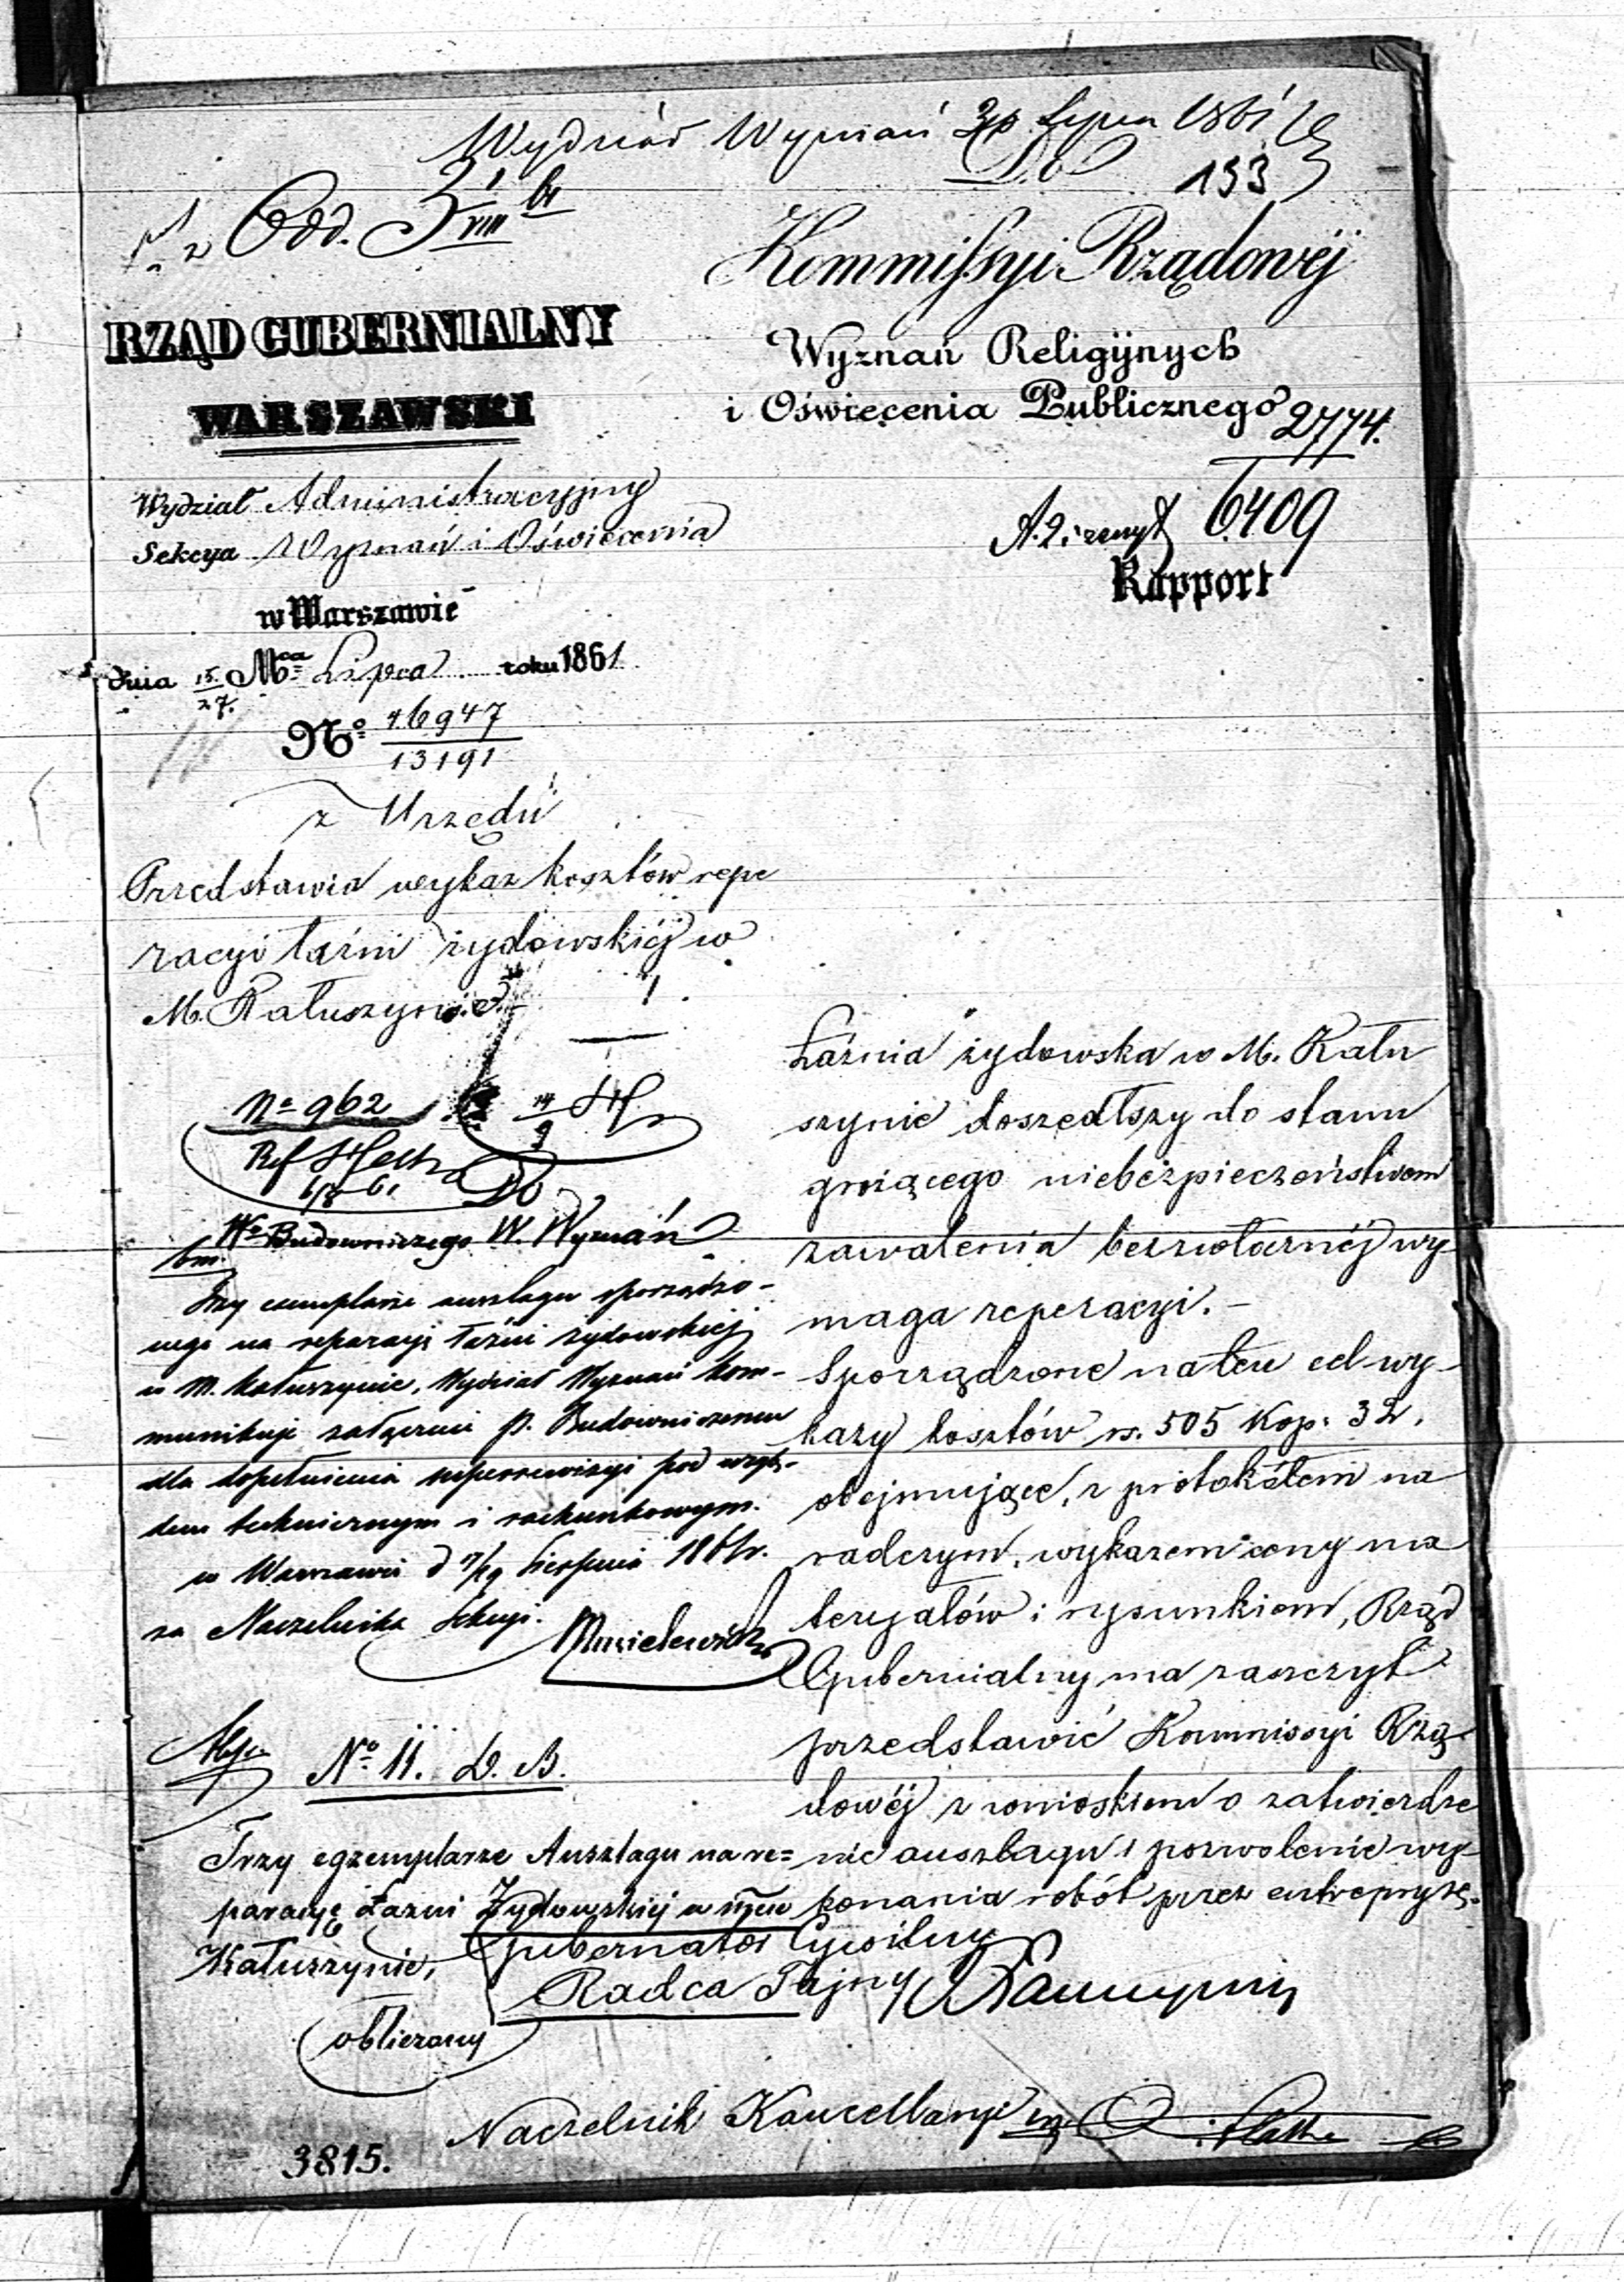 Wydział Wyznań 30 Lipca 1861
Do
193
Odd.
Kommissyi Rządowéj
RZĄD GUBERNIALNY
WARSZAWSKI
Wyznań Religijnych
i Oświecenia Publicznego
2774.
6409
Rapport
Wydział Administracyjny
Sekcya Wyznań i Oświecenia
w Warszawie
dnia 15/27. Mca Lipca roku 1861
No 46947/13191
z Urzędu
Przedstawia wykaz kosztów repe
racyi łaźni żydowskiéj w
M. Kałuszynie.
No 962
Do
Wo Budowniczego W. Wyznań
Trzy exemplarze anszlagu sporządzo-
nego na reparacyę łaźni żydowskiej
w M. Kałuszynie, Wydział Wyznań kom-
munikuje załączeniu P. Budowniczemu
dla dopełnienia superrewizyi pod wzglę-
dem technicznym i rachunkowym.
w Warszawie d 7/19 Sierpnia 1861 r.
za Naczelnika Sekcyi.
No 11. D. B.
Trzy egzemplarze Anszlagu na re=
paracyę Łazni Żydowskiej w mieście
Kałuszynie,
obliczony
3815.
Łaźnia żydowska w M. Kału
szynie doszedłszy do stanu
grożącego niebezpieczeństwem
zawalenia bezzwłocznéj wy
maga reperacyi. –
Sporządzone na ten cel wy-
kazy kosztów rs. 505 kop. 32.
obejmujące, z protokółem na
radczym, wykazem ceny ma
teryałów i rysunkiem, Rząd
Gubernialny ma zaszczyt
przedstawić Kommissyi Rzą-
dowéj z wnioskiem o zatwierdze
nie anszlagu i pozwolenie wy-
konania robót przez entrepryzę.
Gubernator Cywilny
Radca Tajny
Naczelnik Kancellaryi